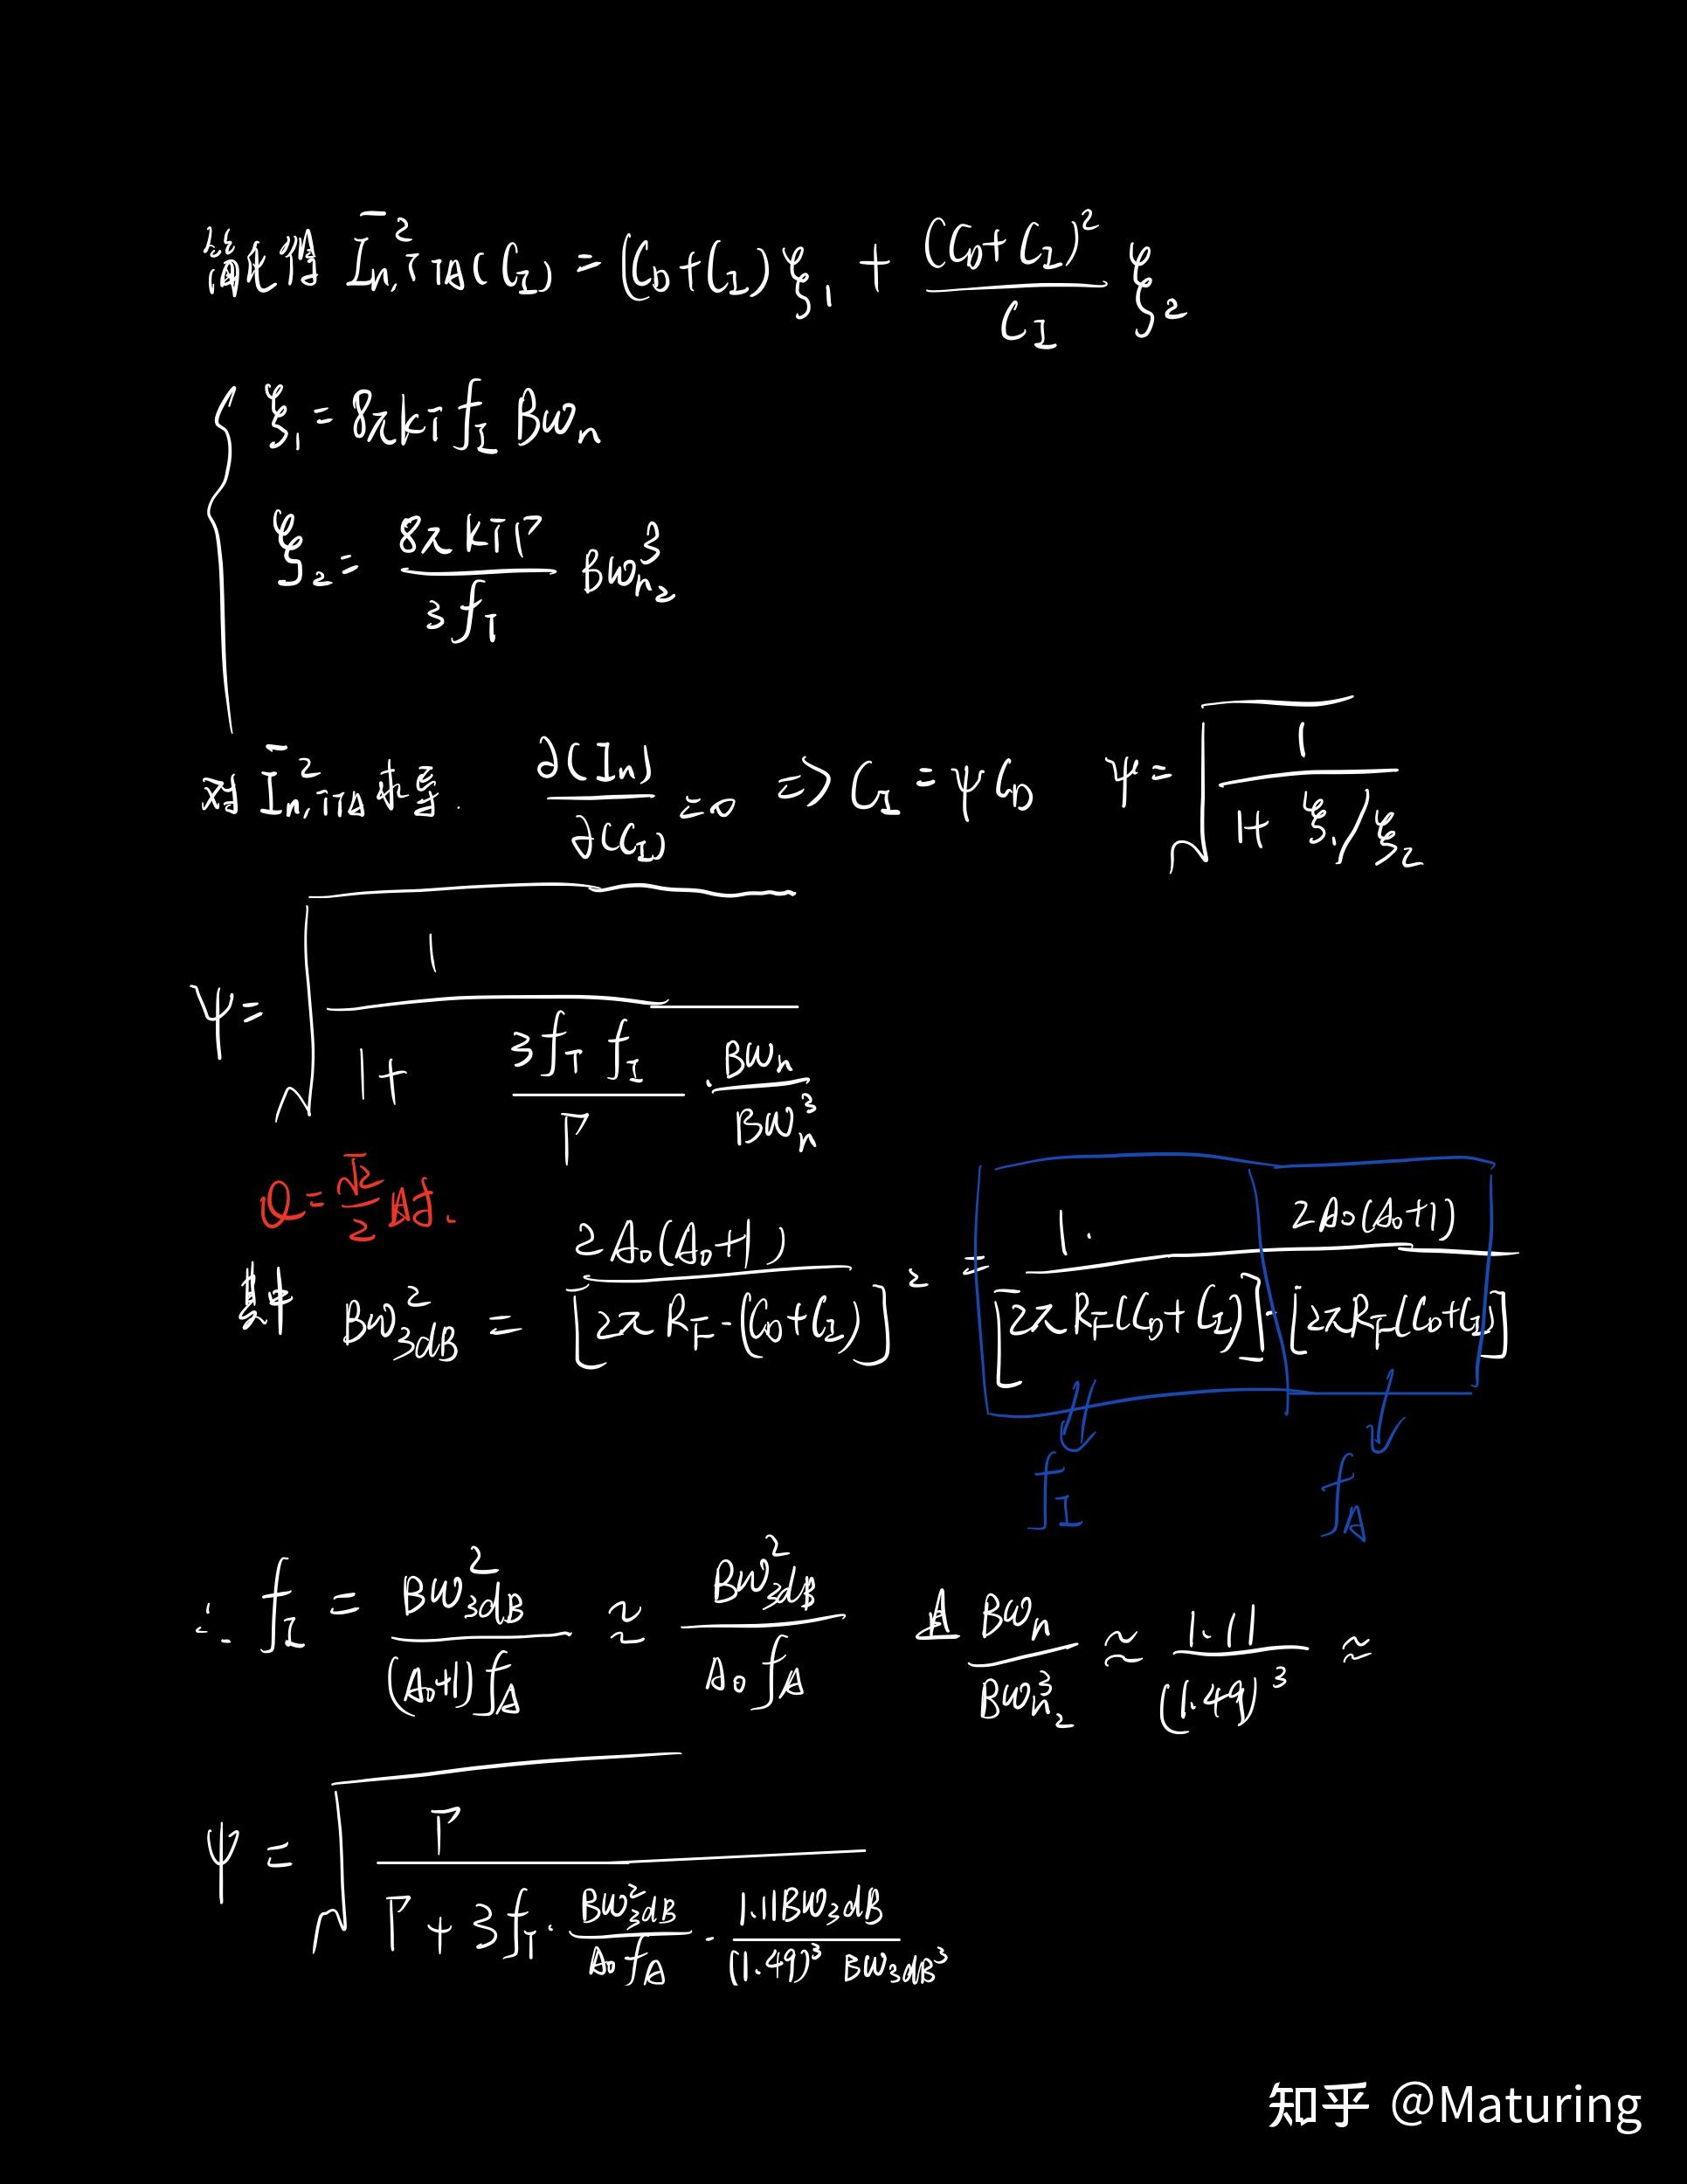 简化得 Īₙ,TIA²(C_I) = (C_D+C_I)ξ₁ + (C_D+C_I)²/C_I ξ₂
ξ₁ = 8πkT f_I BWₙ
ξ₂ = 8πkTΓ/3f_T BWₙ₂³
对 Īₙ,TIA² 求导. ∂(Iₙ)/∂(C_I) = 0 => C_I = ψC_D ψ = √(1/(1+ξ₁/ξ₂))
ψ = √(1/(1+ 3f_T f_I/Γ · BWₙ/BWₙ³))
Q = √2/2 时.
其中 BW²3dB = 2A₀(A₀+1)/[2πR_F·(C_D+C_I)]² = 1·2A₀(A₀+1)/[2πR_F(C_D+C_I)]·[2πR_F(C_D+C_I)]
f_I f_A
∴ f_I = BW²3dB/(A₀+1)f_A ≈ BW²3dB/A₀f_A 且 BWₙ/BWₙ₂³ ≈ 1.11/(1.49)³ ≈
ψ = √(Γ/(Γ+3f_T· BW²3dB/A₀f_A · 1.11BW3dB/(1.49)³ BW3dB³))
知乎 @Maturing